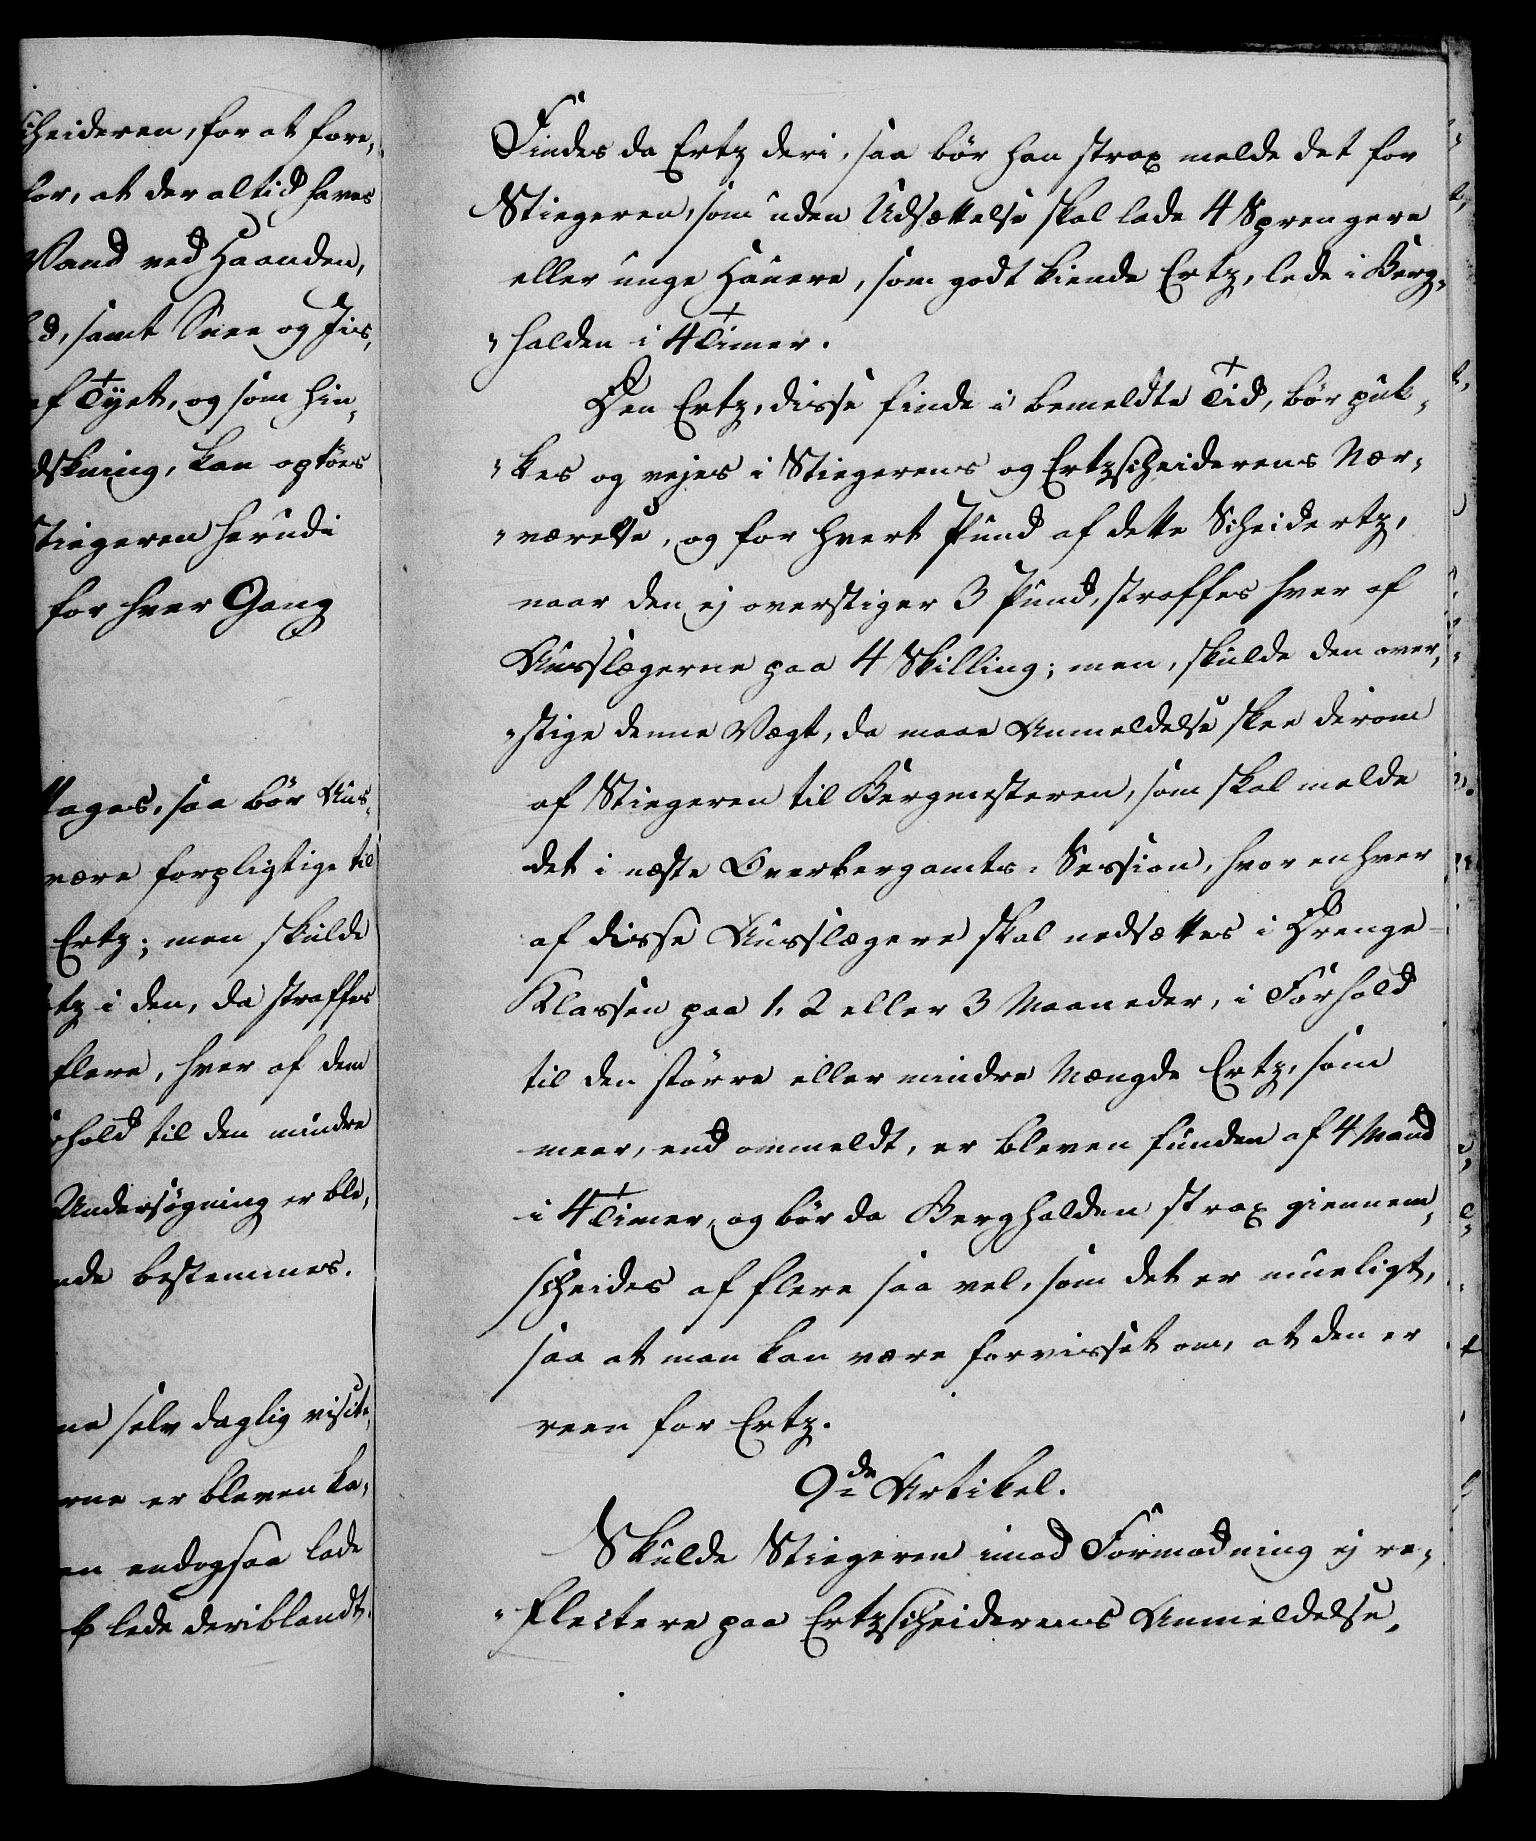 cheideren, for at fore,
for, at der altid haves
Vand ved Haanden,
ld, samt Snee og Jis,
af Töjet, og som hin,
dskning, kan optöes
Stiegeren herudi
for hver Gang
ttages, saa bör Aus,
være forpligtige til
Ertz; men skulde
tz i den, da straffes
flere, hver af dem
rhold til den mindre
Undersøgning er ble,
nde bestemmes.
ne selv daglig visite,
rne er bleven ka,
en endogsaa lade
lede deriblandt.
Findes da Ertz deri, saa bör han strax melde det for
Stiegeren, som uden Udsættelse skal lade 4 Sprengere
eller unge Hauere, som godt kiende Ertz, lede i Berg,
„halden i 4 Timer.
Den Ertz, disse finde i bemeldte Tid, bör puk,
„kes og vejes i Stiegerens og Ertzscheiderens Nær,
„værelse, og for hvert Pund af dette Scheidertz,
naar den ej overstiger 3 Pund, straffes hver af
Ausslægerne paa 4 Skilling; men, skulde den over,
„stige denne Vægt, da maae Anmeldelse skee derom
af Stiegeren til Bergmesteren, som skal melde
det i næste Overbergamts-Session, hvor enhver
af disse Ausslægere skal nedsættes i Drenge-
Klassen paa 1, 2 eller 3 Maaneder, i Forhold
til den större eller mindre Mængde Ertz, som
meer, end ommeldt, er bleven funden af 4 Mand
i 4 Timer, og bör da Berghalden strax giennem,
scheides af flere saa vel, som det er mueligt,
saa at man kan være forvisset om, at den er
reen for Ertz.
9de Artikel.
Skulde Stiegeren imod Formodning ej re,
„flectere paa Ertzscheiderens Anmeldelse,